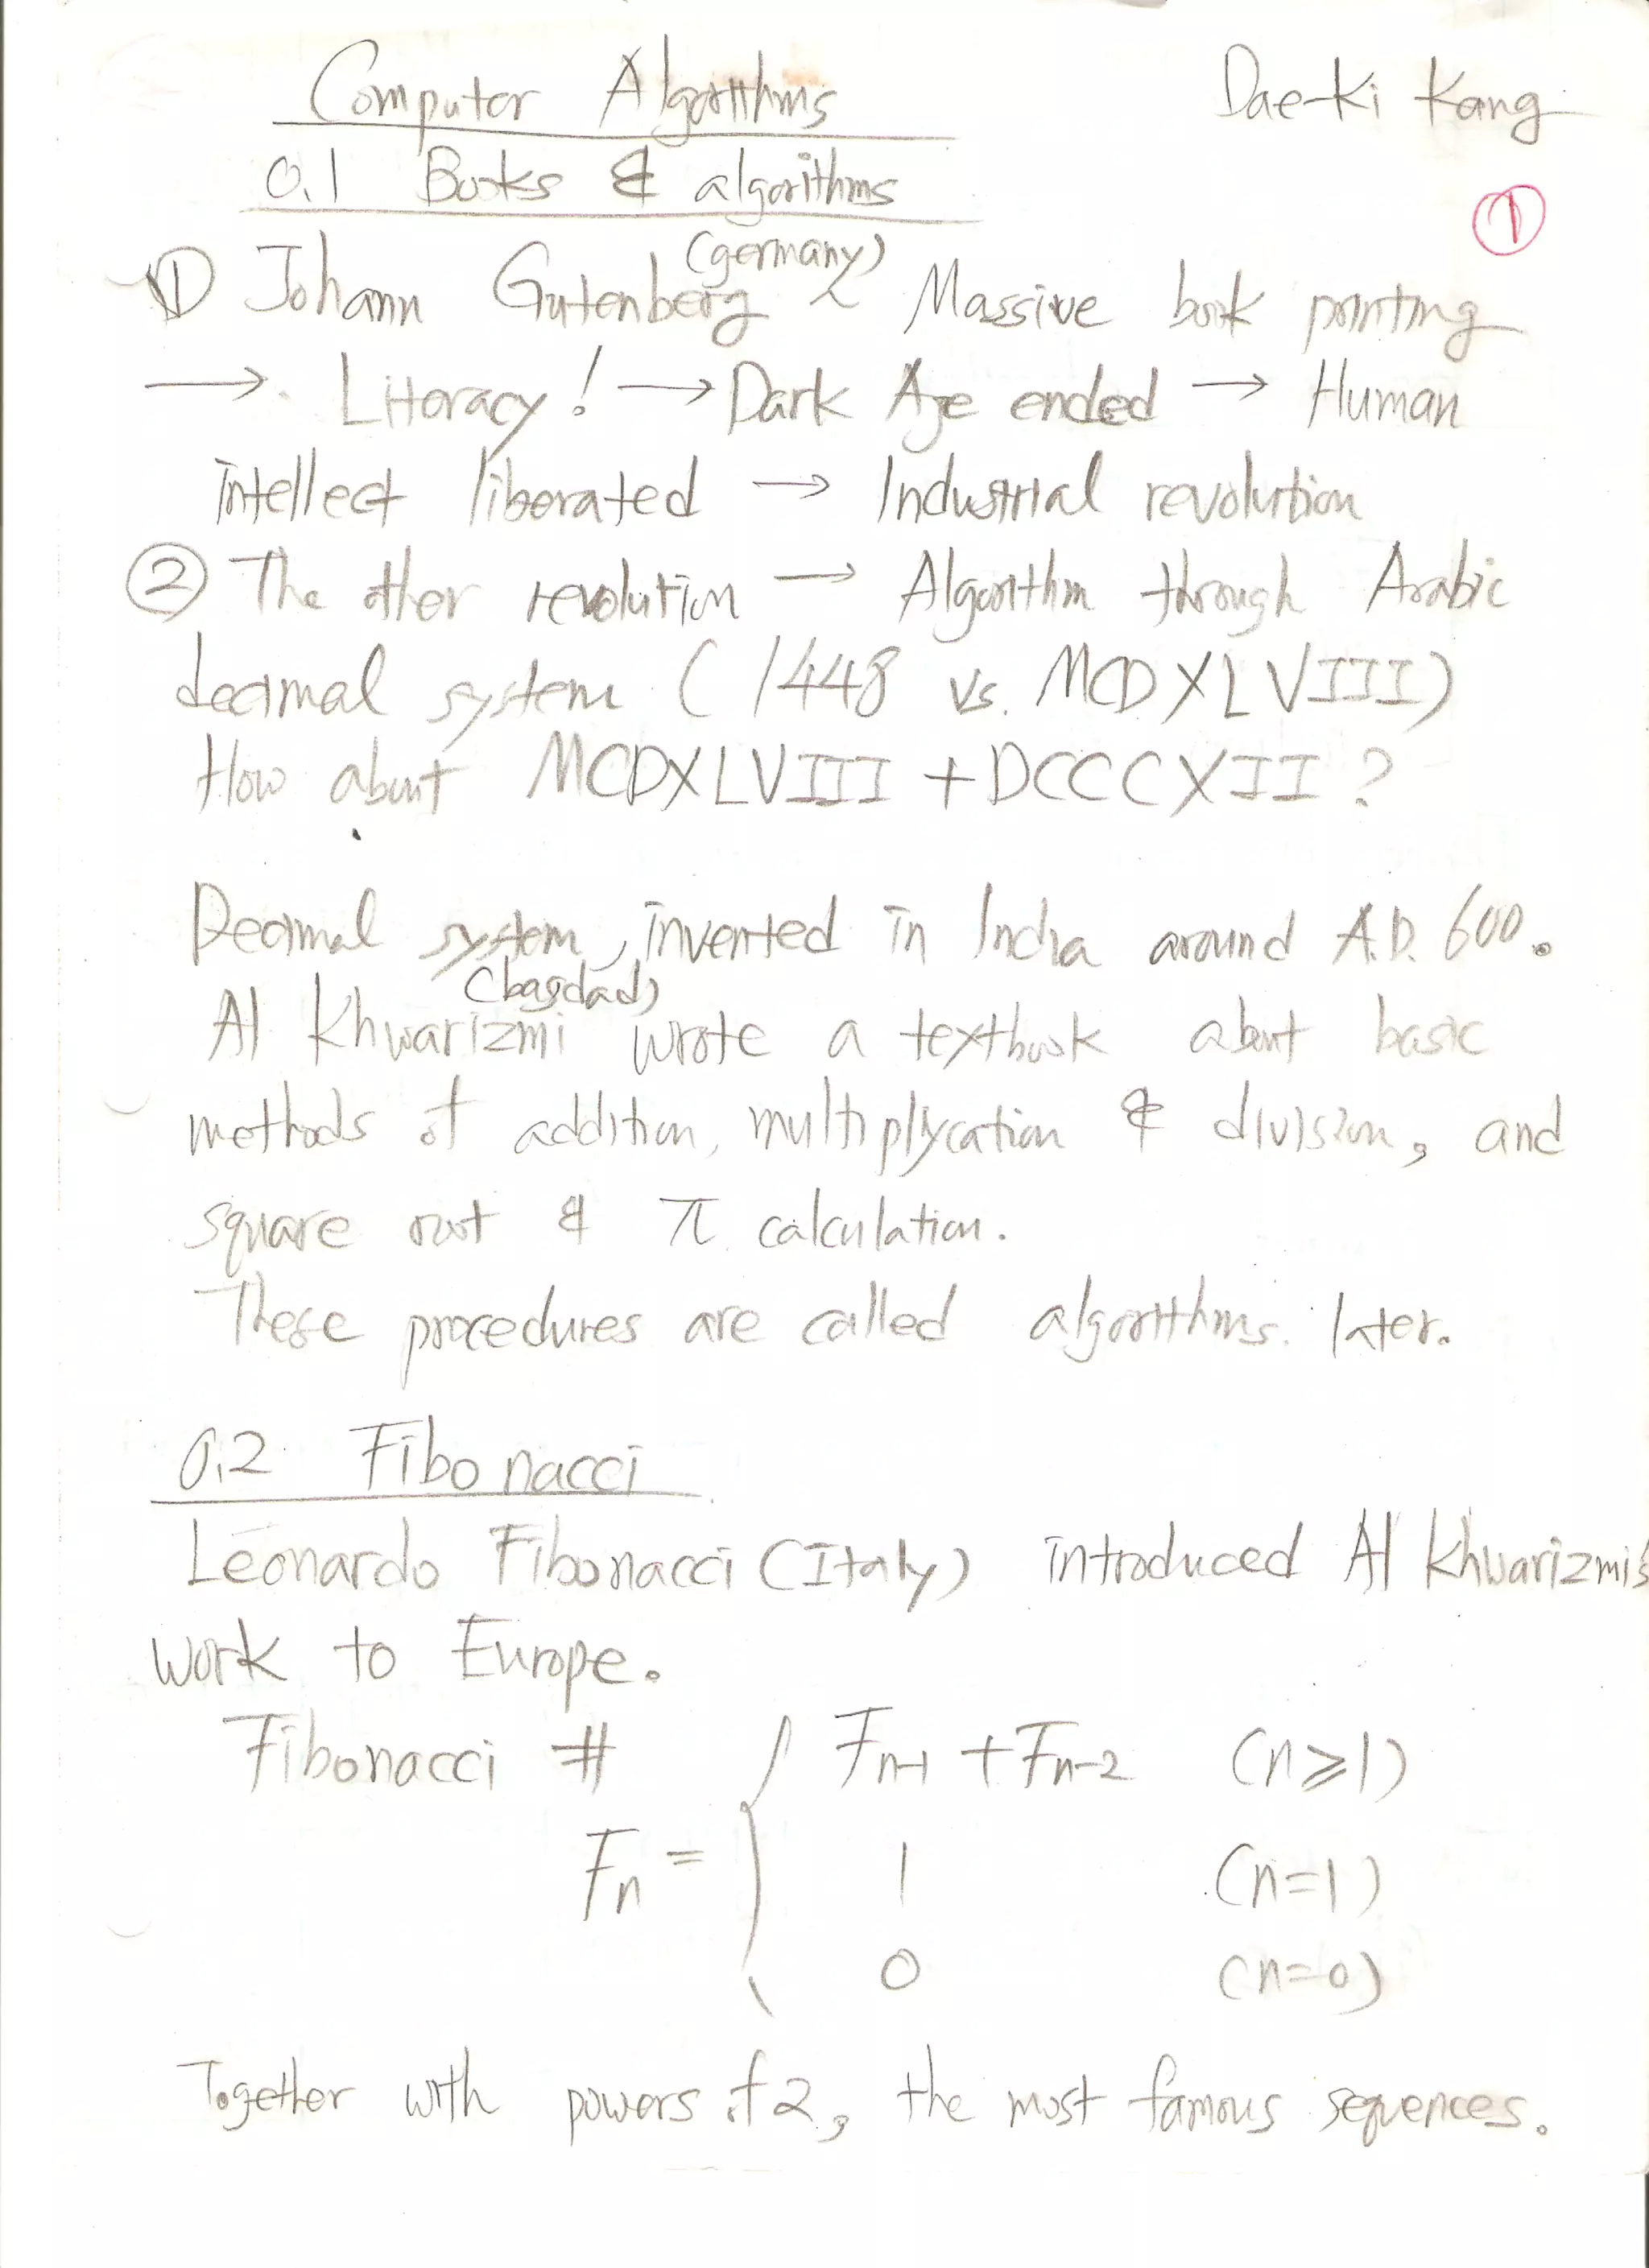 Computer Algorithms Dae-Ki Kang
0.1 Books & algorithms
①
(germany)
① Johann Gutenberg Massive book printing
→ Literacy! → Dark Age ended → Human
intellect liberated → Industrial revolution
② The other revolution → Algorithm through Arabic
decimal system (1448 vs. MCDXLVIII)
How about MCDXLVIII + DCCCXII?
Decimal system, invented in India around A.D. 600.
(bagdad)
Al Khwarizmi wrote a textbook about basic
methods of addition, multiplycation & division, and
square root & π calculation.
These procedures are called algorithms. later.
0.2 Fibonacci
Leonardo Fibonacci (Italy) introduced Al Khwarizmi's
work to Europe.
Fibonacci # Fn-1 + Fn-2 (n≥1)
Fn = { 1 (n=1)
0 (n=0)
Together with powers of 2, the most famous sequences.